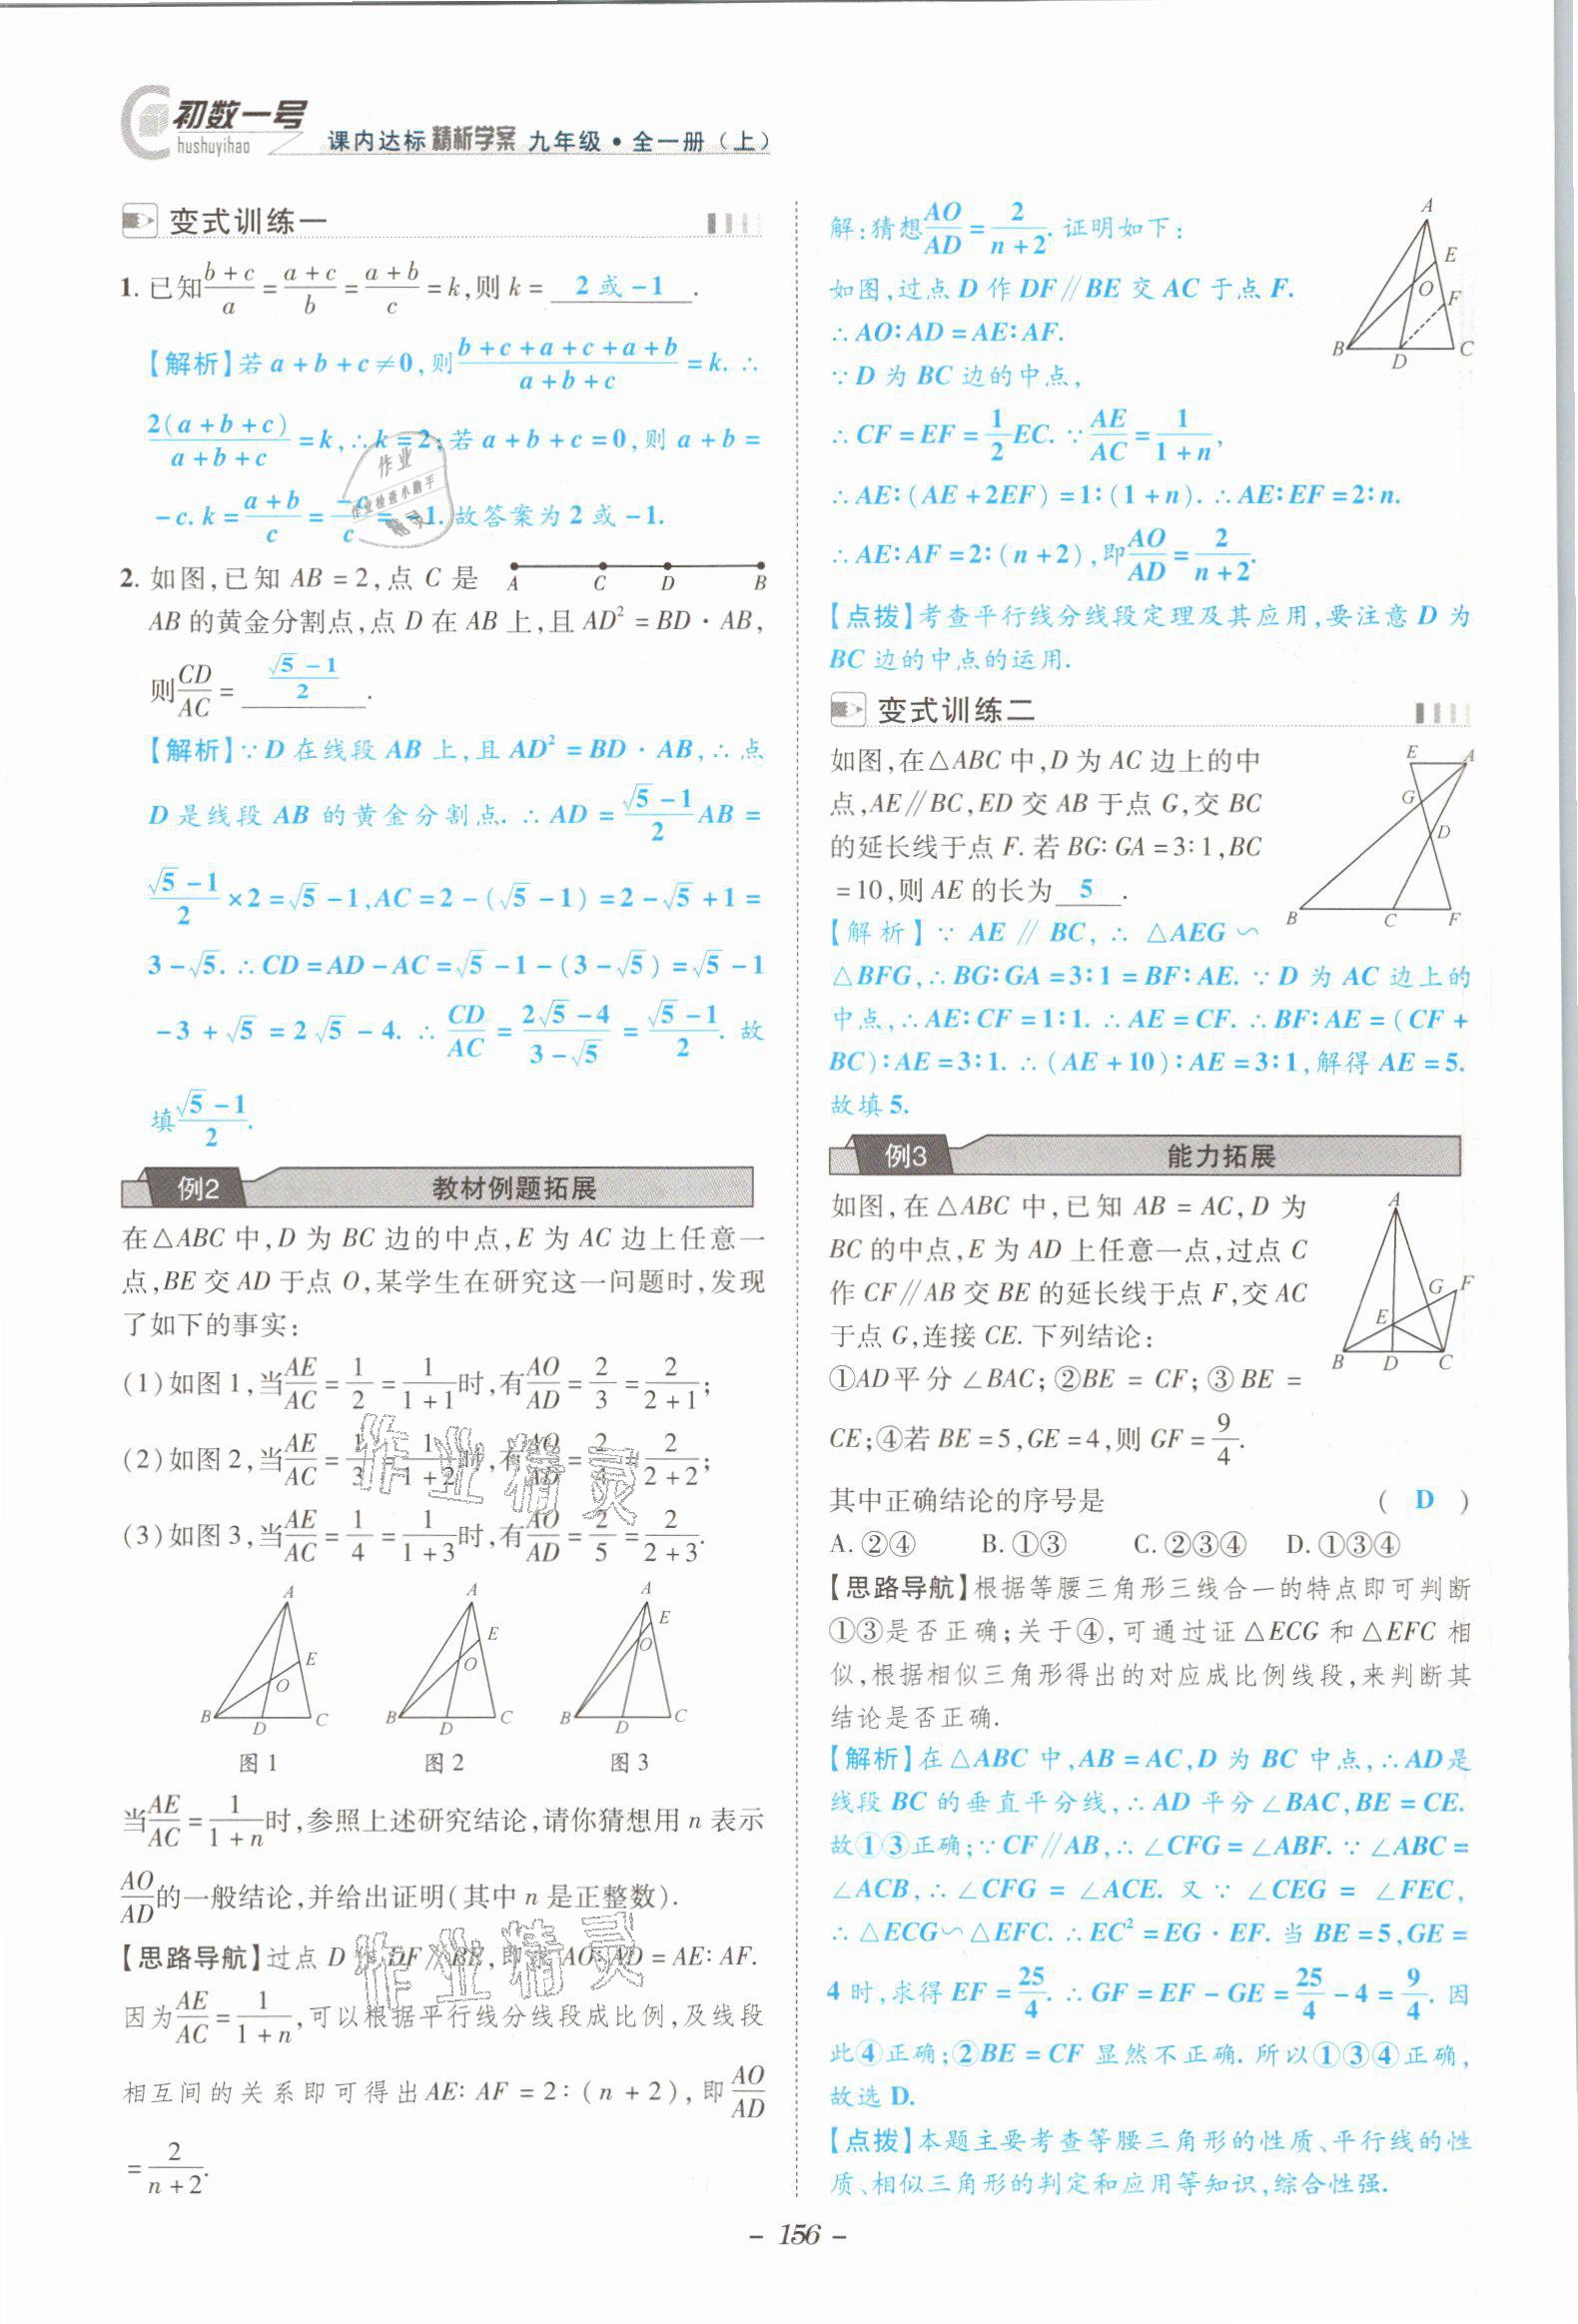 初数一号
hushuyihao
课内达标 精析学案 九年级·全一册(上)
变式训练一
1. 已知(b+c)/a=(a+c)/b=(a+b)/c=k,则 k= 2 或 -1 .
【解析】若 a+b+c≠0,则(b+c+a+c+a+b)/(a+b+c)=k. ∴
2(a+b+c)/(a+b+c)=k,∴k=2;若 a+b+c=0,则 a+b=
-c. k=(a+b)/c=-c/c=-1.故答案为 2 或 -1.
2. 如图,已知 AB=2,点 C 是
A C D B
AB 的黄金分割点,点 D 在 AB 上,且 AD²=BD·AB,
则CD/AC= (√5-1)/2 .
【解析】∵D 在线段 AB 上,且 AD²=BD·AB,∴点
D 是线段 AB 的黄金分割点. ∴AD=(√5-1)/2 AB=
(√5-1)/2×2=√5-1,AC=2-(√5-1)=2-√5+1=
3-√5. ∴CD=AD-AC=√5-1-(3-√5)=√5-1
-3+√5=2√5-4. ∴CD/AC=(2√5-4)/(3-√5)=(√5-1)/2. 故
填(√5-1)/2.
例2 教材例题拓展
在△ABC 中,D 为 BC 边的中点,E 为 AC 边上任意一
点,BE 交 AD 于点 O,某学生在研究这一问题时,发现
了如下的事实:
(1)如图 1,当AE/AC=1/2=1/(1+1)时,有AO/AD=2/3=2/(2+1);
(2)如图 2,当AE/AC=1/3=1/(1+2)时,有AO/AD=2/4=2/(2+2);
(3)如图 3,当AE/AC=1/4=1/(1+3)时,有AO/AD=2/5=2/(2+3).
A E O B D C
A E O B D C
A E O B D C
图 1 图 2 图 3
当AE/AC=1/(1+n)时,参照上述研究结论,请你猜想用 n 表示
AO/AD的一般结论,并给出证明(其中 n 是正整数).
【思路导航】过点 D 作 DF∥BE,即求 AO∶AD=AE∶AF.
因为AE/AC=1/(1+n),可以根据平行线分线段成比例,及线段
相互间的关系即可得出 AE∶AF=2∶(n+2),即AO/AD
=2/(n+2).
解:猜想AO/AD=2/(n+2). 证明如下:
如图,过点 D 作 DF∥BE 交 AC 于点 F.
∴AO∶AD=AE∶AF.
∵D 为 BC 边的中点,
∴CF=EF=1/2 EC. ∵AE/AC=1/(1+n),
∴AE∶(AE+2EF)=1∶(1+n). ∴AE∶EF=2∶n.
∴AE∶AF=2∶(n+2),即AO/AD=2/(n+2).
A E O F B D C
【点拨】考查平行线分线段定理及其应用,要注意 D 为
BC 边的中点的运用.
变式训练二
如图,在△ABC 中,D 为 AC 边上的中
点,AE∥BC,ED 交 AB 于点 G,交 BC
的延长线于点 F. 若 BG∶GA=3∶1,BC
=10,则 AE 的长为 5 .
E A G D B C F
【解析】∵ AE∥BC,∴ △AEG∽
△BFG,∴BG∶GA=3∶1=BF∶AE. ∵D 为 AC 边上的
中点,∴AE∶CF=1∶1. ∴AE=CF. ∴BF∶AE=(CF+
BC)∶AE=3∶1. ∴(AE+10)∶AE=3∶1,解得 AE=5.
故填 5.
例3 能力拓展
如图,在△ABC 中,已知 AB=AC,D 为
BC 的中点,E 为 AD 上任意一点,过点 C
作 CF∥AB 交 BE 的延长线于点 F,交 AC
于点 G,连接 CE. 下列结论:
①AD 平分∠BAC;②BE=CF;③BE=
CE;④若 BE=5,GE=4,则 GF=9/4.
A G F E B D C
其中正确结论的序号是 ( D )
A. ②④ B. ①③ C. ②③④ D. ①③④
【思路导航】根据等腰三角形三线合一的特点即可判断
①③是否正确;关于④,可通过证△ECG 和△EFC 相
似,根据相似三角形得出的对应成比例线段,来判断其
结论是否正确.
【解析】在△ABC 中,AB=AC,D 为 BC 中点,∴AD是
线段 BC 的垂直平分线,∴AD 平分∠BAC,BE=CE.
故①③正确;∵CF∥AB,∴∠CFG=∠ABF. ∵∠ABC=
∠ACB,∴∠CFG=∠ACE. 又∵∠CEG=∠FEC,
∴△ECG∽△EFC. ∴EC²=EG·EF. 当 BE=5,GE=
4 时,求得 EF=25/4. ∴GF=EF-GE=25/4-4=9/4. 因
此④正确;②BE=CF 显然不正确. 所以①③④正确,
故选 D.
【点拨】本题主要考查等腰三角形的性质、平行线的性
质、相似三角形的判定和应用等知识,综合性强.
- 156 -
作业
作业检查小助手
作业精灵
作业精灵